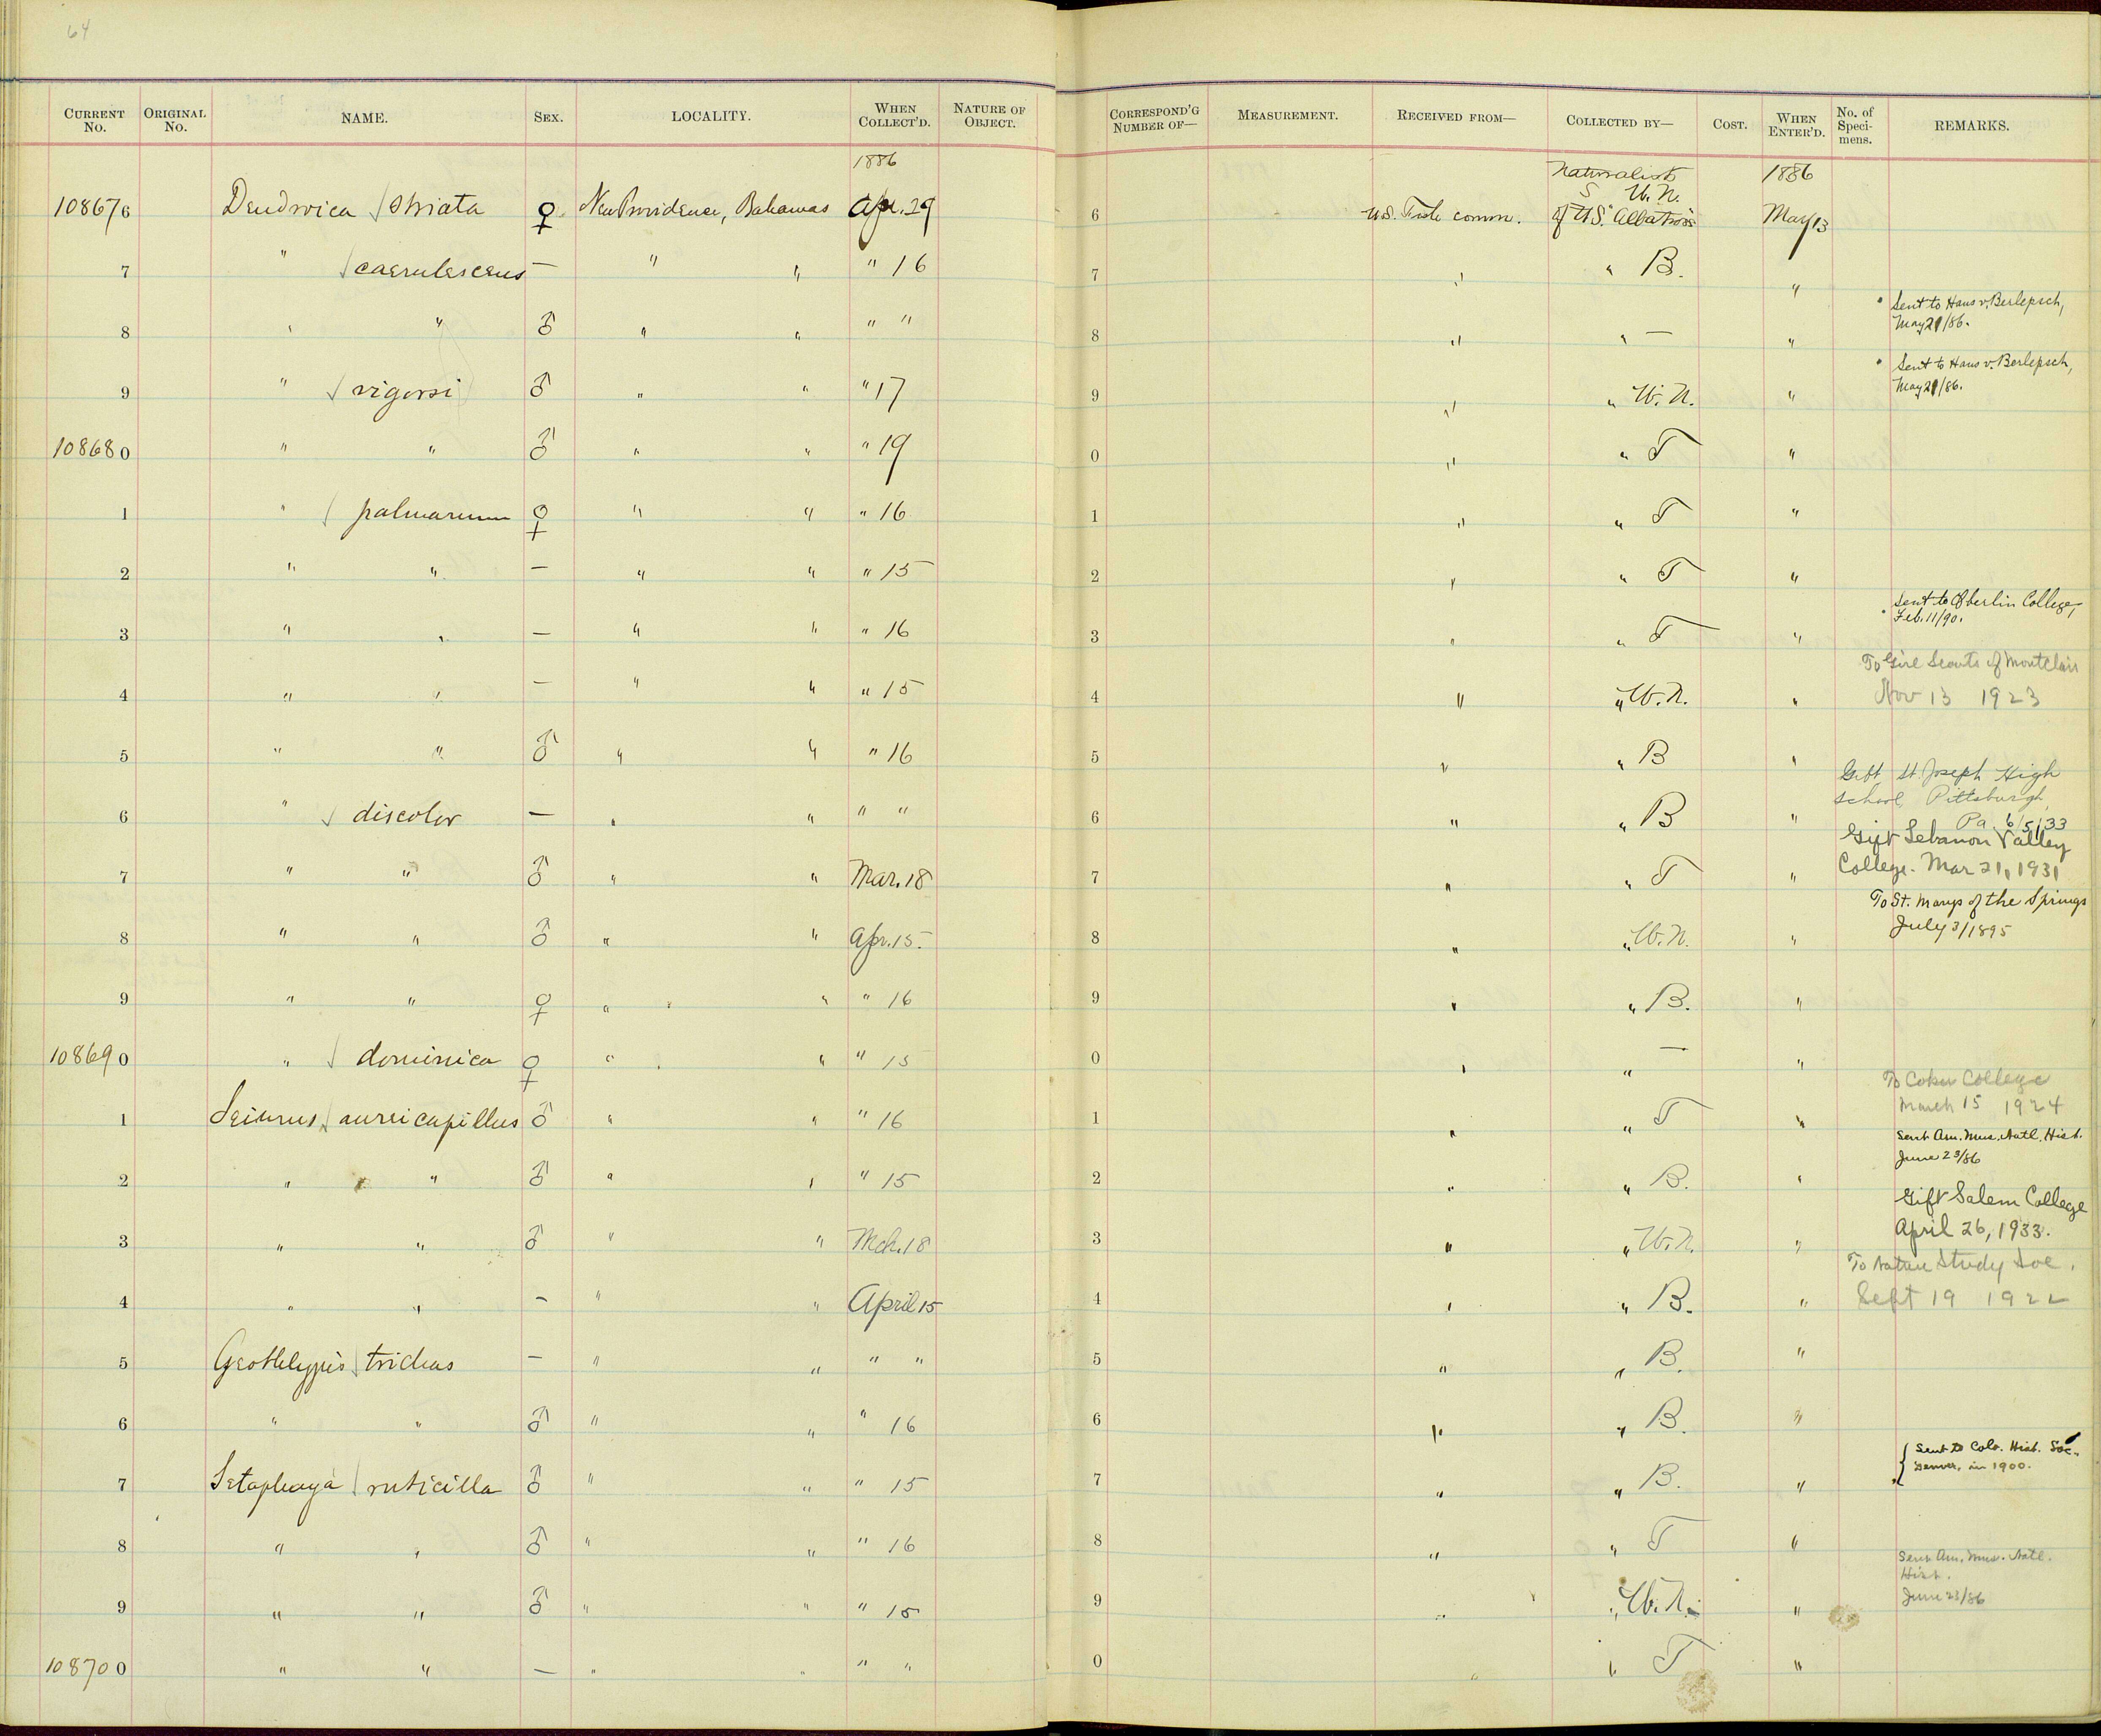 64
CURRENT No. ORIGINAL No. NAME. SEX. LOCALITY. WHEN COLLECT'D. NATURE OF OBJECT. CORRESPOND'G NUMBER OF— MEASUREMENT. RECEIVED FROM— COLLECTED BY— COST. WHEN ENTER'D. No. of Specimens. REMARKS.
1886 Naturalists 1886
108676 Dendroica striata ♀ New Providence, Bahamas Apr. 29 6 U.S. Fish comm. of U.S.S. Albatross W.N. May 13
7 " caerulescens — " " " 16 7 " " B. "
8 " " ♂ " " " " 8 " " — " Sent to Hans v. Berlepsch, May 21/86.
9 " vigorsi ♂ " " " 17 9 " " W.N. " Sent to Hans v. Berlepsch, May 21/86.
108680 " " ♂ " " " 19 0 " " T "
1 " palmarum ♀ " " " 16 1 " " T "
2 " " — " " " 15 2 " " T "
3 " " — " " " 16 3 " " T " Sent to Oberlin College, Feb. 11/90.
4 " " — " " " 15 4 " " W.N. " To Girl Scouts of Montclair Nov 13 1923
5 " " ♂ " " " 16 5 " " B "
6 " discolor — " " " " 6 " " B " Gift St. Joseph High School, Pittsburgh, Pa. 6/5/33
7 " " ♂ " " Mar. 18 7 " " T " Gift Lebanon Valley College. Mar 21, 1931
8 " " ♂ " " Apr. 15. 8 " " W.N. " To St. Marys of the Springs July 3/1895
9 " " ♀ " " " 16 9 " " B. "
108690 " dominica ♀ " " " 15 0 " " — "
1 Seiurus auricapillus ♂ " " " 16 1 " " T " To Coker College March 15 1924
2 " " ♂ " " " 15 2 " " B. " Sent Am. Mus. Natl. Hist. June 23/86
3 " " ♂ " " Mch. 18 3 " " W.N. " Gift Salem College April 26, 1933.
4 " " — " " April 15 4 " " B. " To Nature Study Soc. Sept 19 1922
5 Geothlypis trichas — " " " " 5 " " B. "
6 " " ♂ " " " 16 6 " " B. "
7 Setophaga ruticilla ♂ " " " 15 7 " " B. " Sent to Colo. Hist. Soc., Denver, in 1900.
8 " " ♂ " " " 16 8 " " T "
9 " " ♂ " " " 15 9 " " W.N. " Sent Am. Mus. Natl. Hist. June 23/86
108700 " " — " " " " 0 " " T "